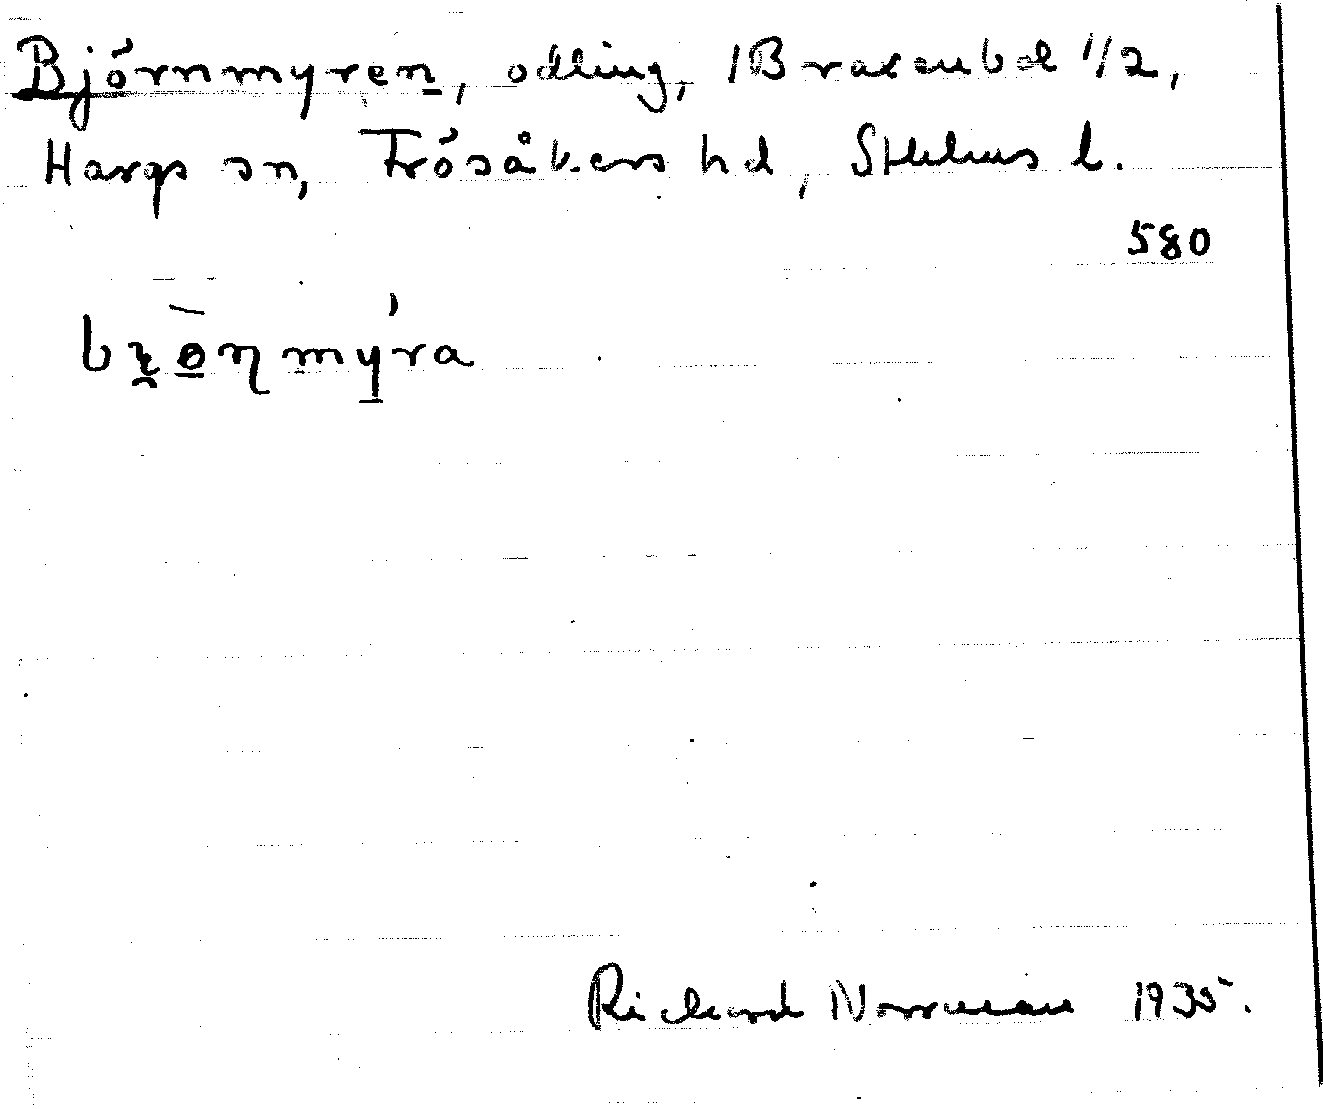 Björnmyren, odling, Braxenbol 1/2,
Hargs sn, Frösåkers hd, Sthlms l.
580
bʒ̯ø̠̀ɳmy̠̍ra
Richard Norrman 1935.